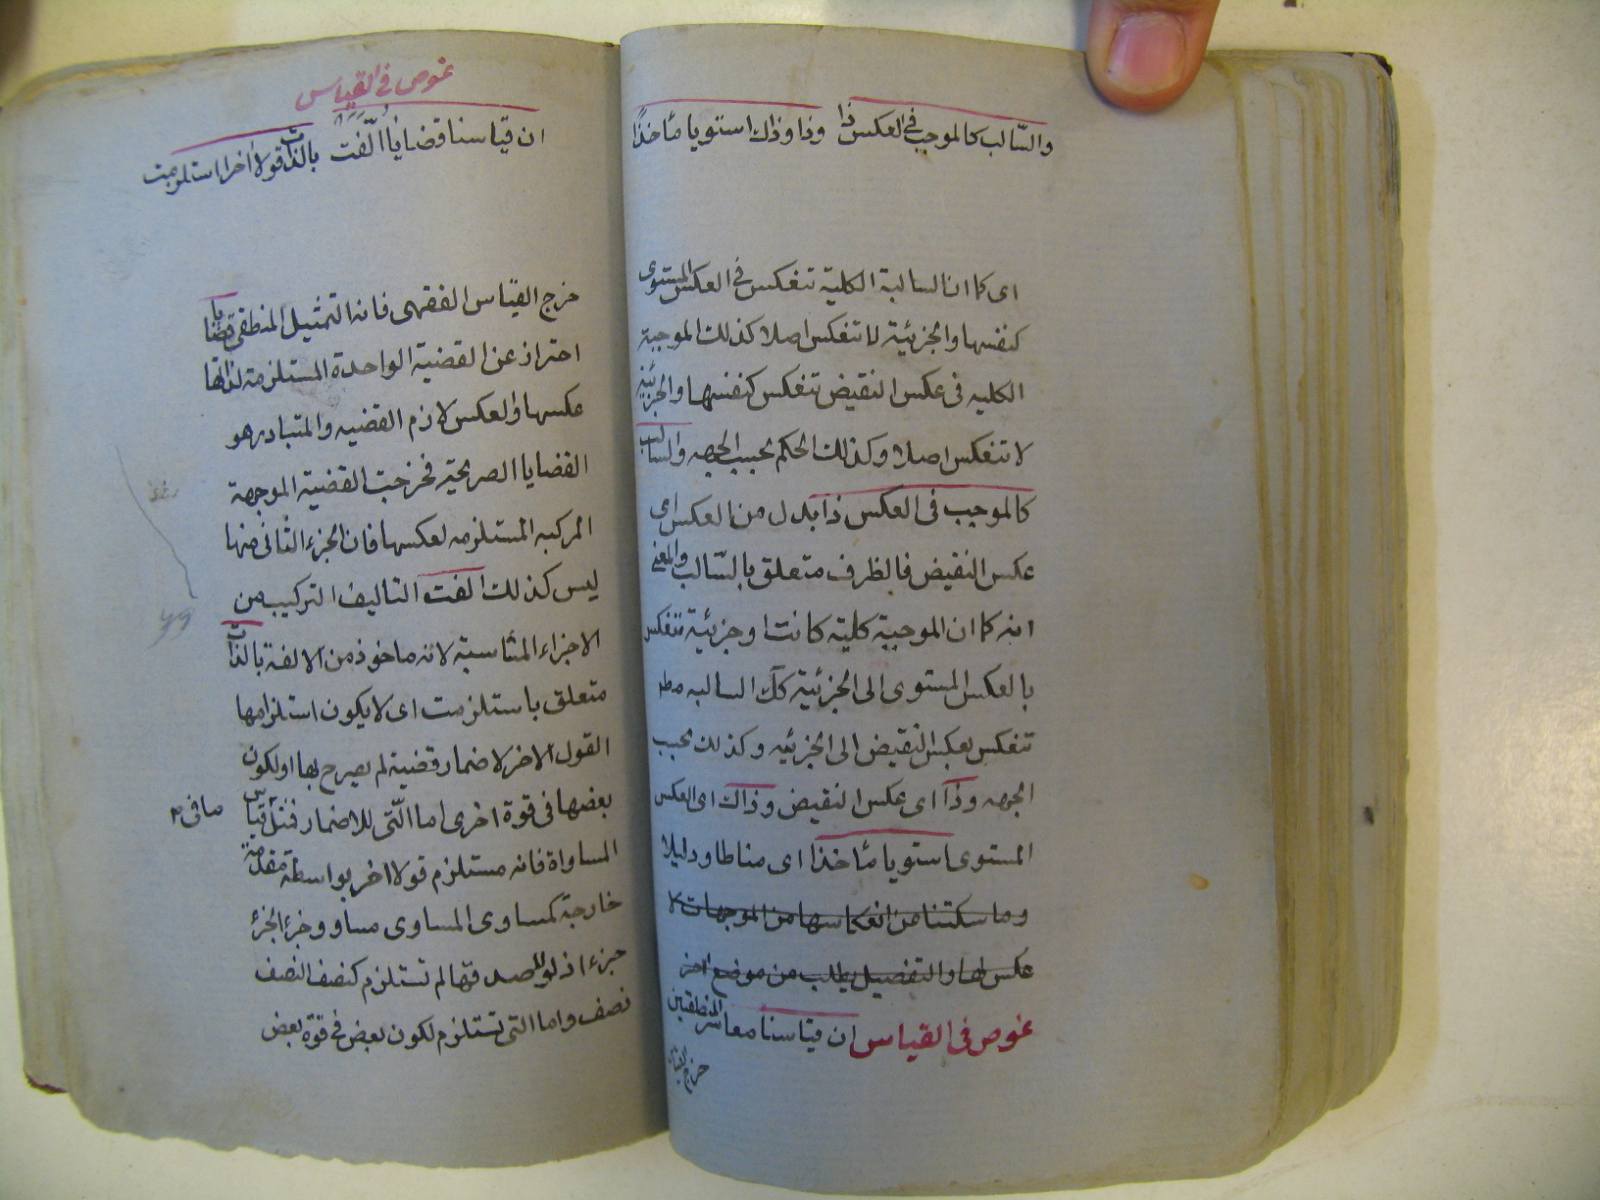 والسّالب كالموجب في العكس ذا وذا وذاك استويا مأخذًا
اى كما ان السالبة الكلية تنعكس في العكس المستوى
كنفسها والجزئية لا تنعكس اصلا كذلك الموجبة
الكليه فى عكس النقيض تنعكس كنفسها والجزئية
لا تنعكس اصلا وكذلك الحكم بحسب الجهه والسالب
كالموجب فى العكس ذا بدل من العكس اى
عكس النقيض فالظرف متعلق بالسّالب والمعنى
انه كما ان الموجبة كلية كانت او جزئية تنعكس
بالعكس المستوى الى الجزئية كك السالبه مطـ
تنعكس بعكس النقيض الى الجزئيه وكذلك بحسب
الجهه وذا اى عكس النقيض وذاك اى العكس
المستوى استويا مأخذا اى مناطا ودليلا
وما سكتنا من انعكاسها من الموجهات لا
عكس لها والتفصيل يطلب من موضع اخر
غوص فى القياس ان قياسنا معاشر المنطقيين
خرج القياس
غوص في القياس
ان قياسنا قضايا الّفت بالذات قولا اخر استلزمت
خرج القياس الفقهى فانه التمثيل المنطقى قضايا
احتراز عن القضية الواحدة المستلزمة لذاتها
عكسها والعكس لازم القضيه والمتبادر هو
القضايا الصريحة فخرجت القضية الموجهة
المركبه المستلزمه لعكسها فان الجزء الثانى منها
ليس كذلك الفت التاليف التركيب من
الاجزاء المتناسبة لانه ماخوذ من الالفة بالذات
متعلق باستلزمت اى لا يكون استلزامها
القول الاخر لاضمار قضية لم يصرح بها او لكون
بعضها فى قوة اخرى اما الّتى للاضمار فمثل قياس
ما فى
المساواة فانه مستلزم قولا اخر بواسطة مقدمة
خارجة كمساوى المساوى مساو وجزء الجزء
جزء اذ لو لم صدقها لم تستلزم كنصف النصف
نصف واما التى تستلزم لكون بعض فى قوة بعض